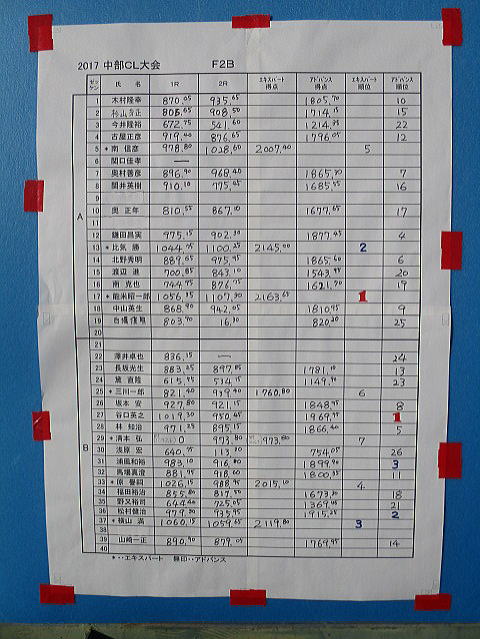 2017 中部CL大会 F2B
ゼッケン 氏 名 1R 2R エキスパート得点 アドバンス得点 エキスパート順位 アドバンス順位
A
1 木村隆幸 870.05 935.65 1805.70 10
2 杉山貞正 805.65 908.50 1714.15 15
3 今井隆裕 672.75 541.60 1214.35 22
4 古屋正彦 919.40 876.65 1796.05 12
5 *南 信彦 978.80 1028.60 2007.40 5
6 関口佳孝 —
7 奥村善彦 896.90 968.40 1865.30 7
8 関井英樹 910.10 775.45 1685.55 16
9
10 奥 正年 810.55 867.10 1677.65 17
11
12 鎌田昌実 975.15 902.30 1877.45 4
13 *比気 勝 1044.75 1100.25 2145.00 2
14 北野秀明 889.65 975.95 1865.60 6
15 渡辺 進 700.85 843.10 1543.95 20
16 南 克也 744.95 876.75 1621.70 19
17 *能米昭一郎 1056.35 1107.30 2163.65 1
18 中山英生 868.90 942.05 1810.95 9
19 803.90 16.30 820.20 25
20
B
21
22 澤井卓也 836.15 — 24
23 長坂光生 883.25 897.85 1781.10 13
24 篤 直隆 615.75 534.15 1149.90 23
25 *三川一郎 821.40 939.40 1760.80 6
26 坂本 安 927.80 921.15 1848.95 8
27 谷口英之 1019.30 950.45 1969.75 1
28 林 知治 971.25 895.15 1866.40 5
29 *清本 弘 0 973.80 973.80 7
30 浅原 宏 640.75 113.30 754.05 26
31 浦風和裕 983.10 916.80 1899.90 3
32 馬場真澄 881.75 918.60 1800.35 11
33 *原 督嗣 1026.15 988.95 2015.10 4
34 福田裕治 855.80 817.50 1673.30 18
35 野又裕史 644.40 725.05 1369.45 21
36 松村健治 979.30 935.95 1915.25 2
37 *横山 満 1060.15 1059.65 2119.80 3
38
39 山崎一正 890.90 879.05 1769.95 14
40
*・・エキスパート 無印・・アドバンス